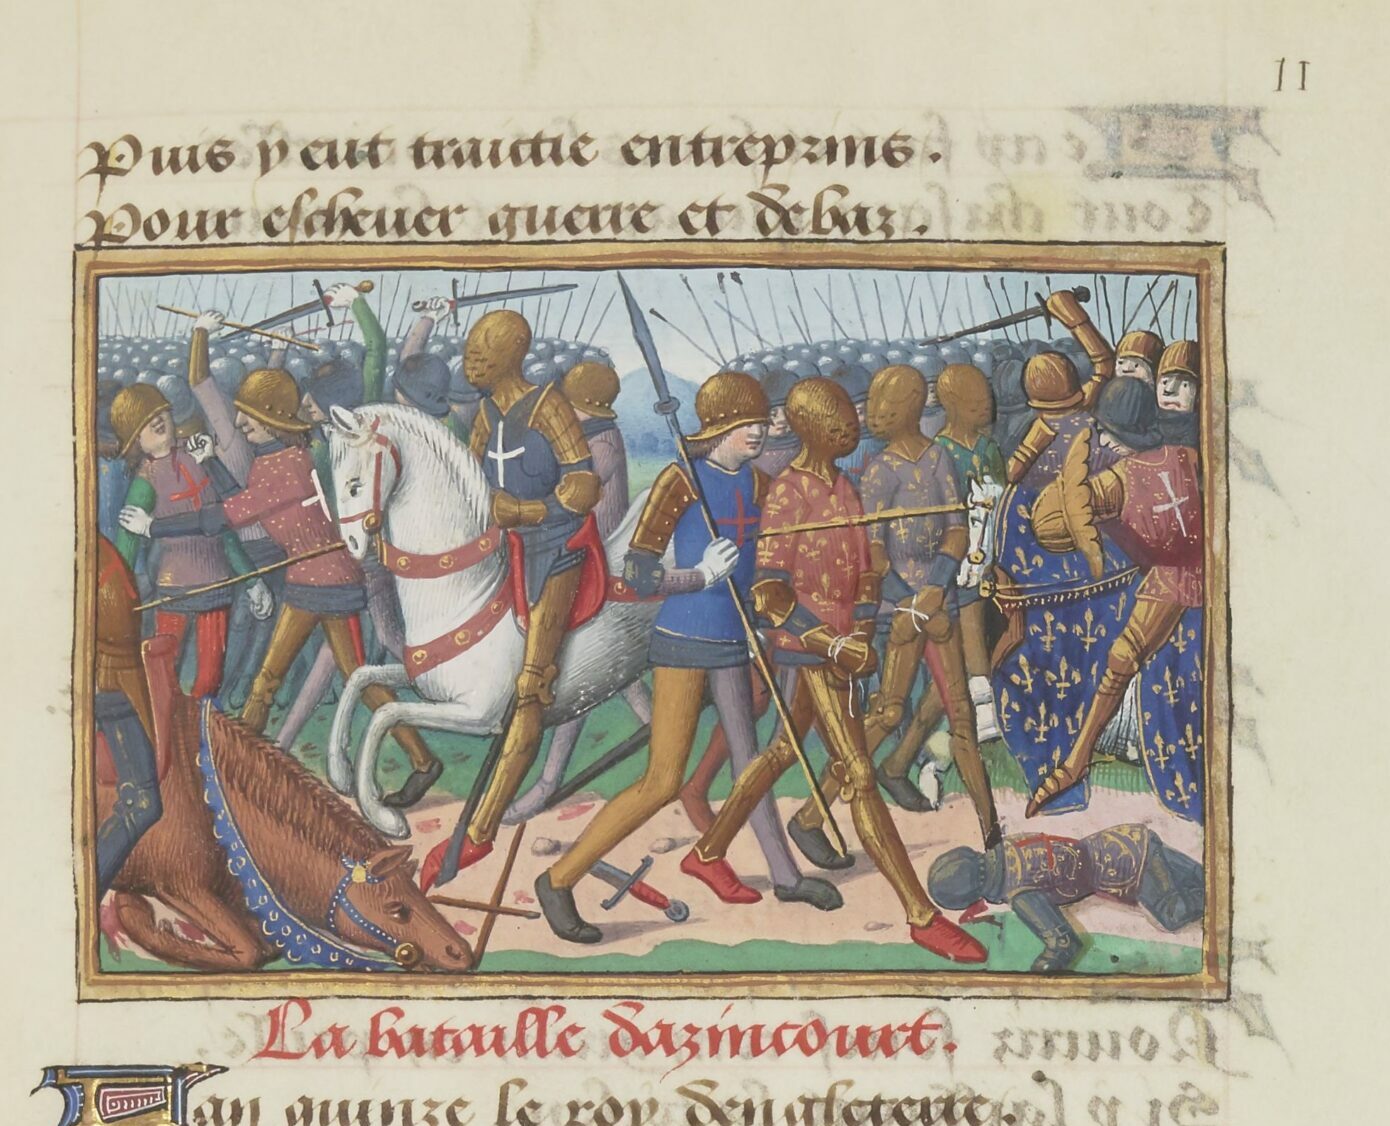 11
Puis y eut traictie entreprins.
Pour escheuer guerre et debaz.
La bataille dazincourt.
Lan quinze le roy dengleterre.